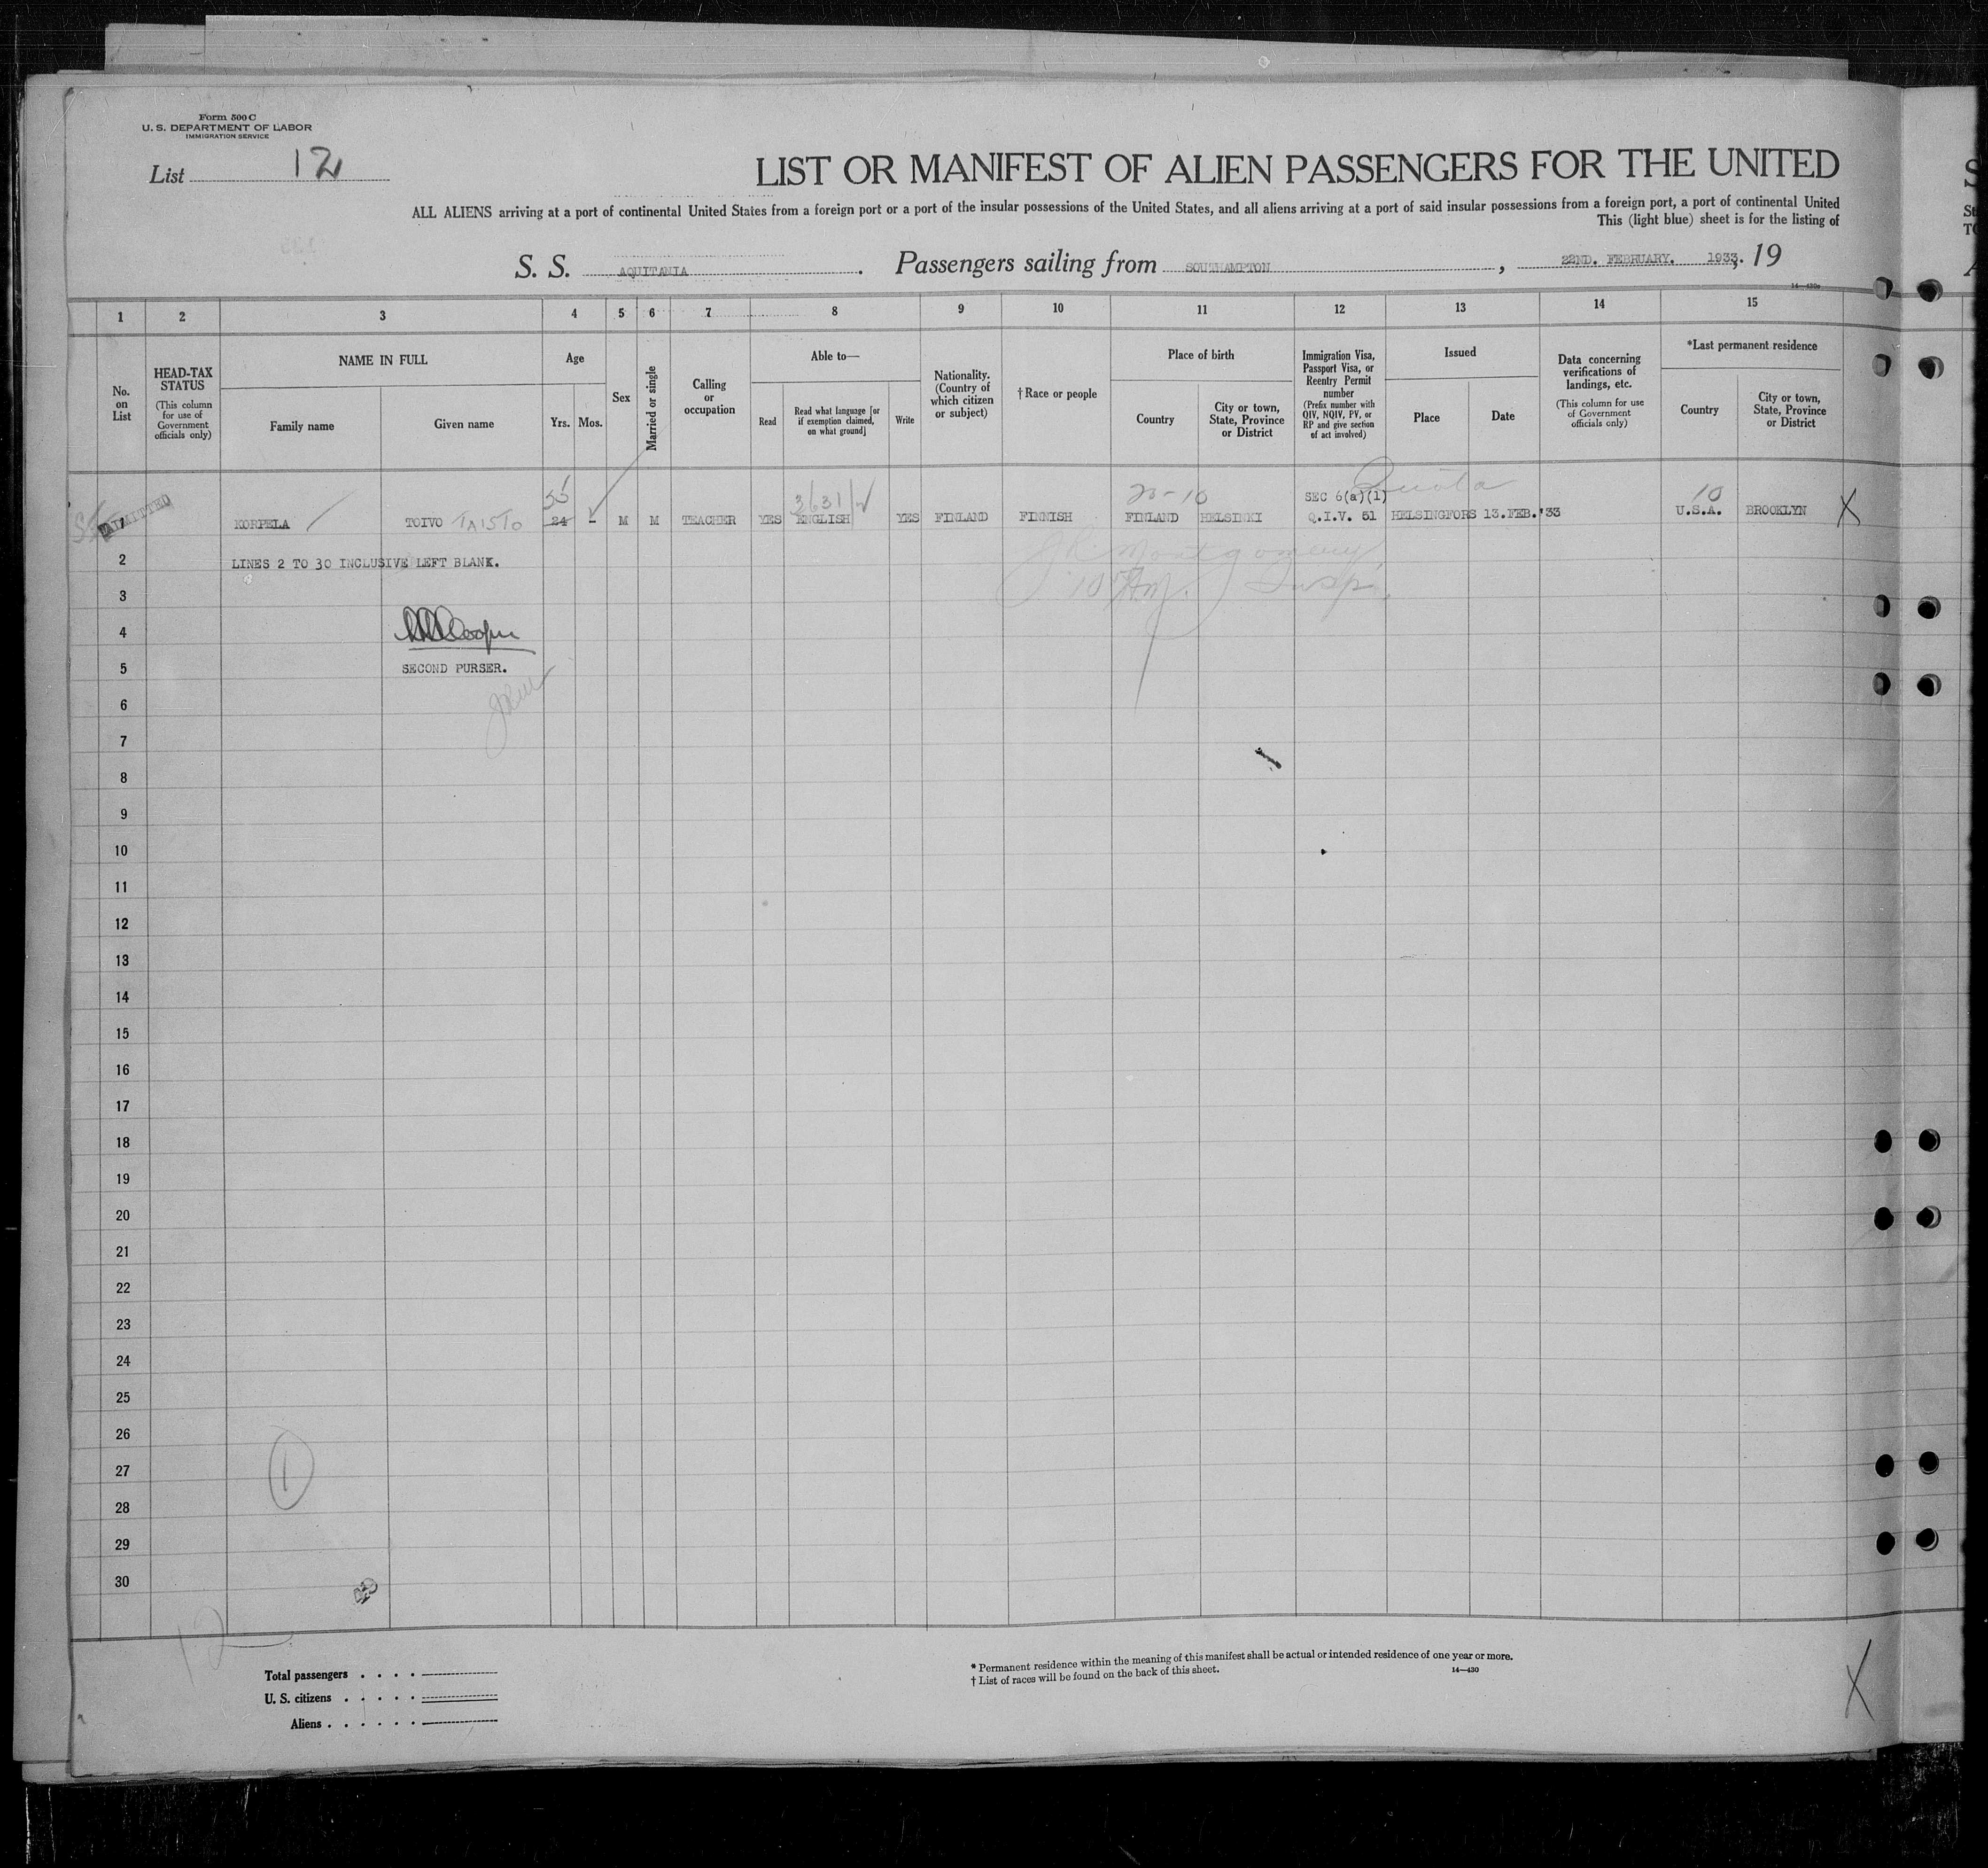 Form 500 C
U. S. DEPARTMENT OF LABOR
IMMIGRATION SERVICE
List 12
LIST OR MANIFEST OF ALIEN PASSENGERS FOR THE UNITED
ALL ALIENS arriving at a port of continental United States from a foreign port or a port of the insular possessions of the United States, and all aliens arriving at a port of said insular possessions from a foreign port, a port of continental United
This (light blue) sheet is for the listing of
S. S. AQUITANIA. Passengers sailing from SOUTHAMPTON, 22ND. FEBRUARY. 1933. 19
14—430a
1 2 3 4 5 6 7 8 9 10 11 12 13 14 15
No. on List
HEAD-TAX STATUS
(This column for use of Government officials only)
NAME IN FULL
Family name
Given name
Age
Yrs. Mos.
Sex
Married or single
Calling or occupation
Able to—
Read
Read what language [or if exemption claimed, on what ground]
Write
Nationality. (Country of which citizen or subject)
† Race or people
Place of birth
Country
City or town, State, Province or District
Immigration Visa, Passport Visa, or Reentry Permit number
(Prefix number with QIV, NQIV, PV, or RP and give section of act involved)
Issued
Place
Date
Data concerning verifications of landings, etc.
(This column for use of Government officials only)
*Last permanent residence
Country
City or town, State, Province or District
55 3/31/ 10 SEC 6(a)(1) Quota 10
ADMITTED 1 KORPELA TOIVO TAISTO 24 - M M TEACHER YES ENGLISH YES FINLAND FINNISH FINLAND HELSINKI Q.I.V. 51 HELSINGFORS 13.FEB.'33 U.S.A. BROOKLYN X
2 LINES 2 TO 30 INCLUSIVE LEFT BLANK. Montgomery
3 Insp.
4 Cooper
5 SECOND PURSER.
6
7
8
9
10
11
12
13
14
15
16
17
18
19
20
21
22
23
24
25
26
27 1
28
29
30
12
Total passengers
U. S. citizens
Aliens
* Permanent residence within the meaning of this manifest shall be actual or intended residence of one year or more.
† List of races will be found on the back of this sheet.
14—430
X